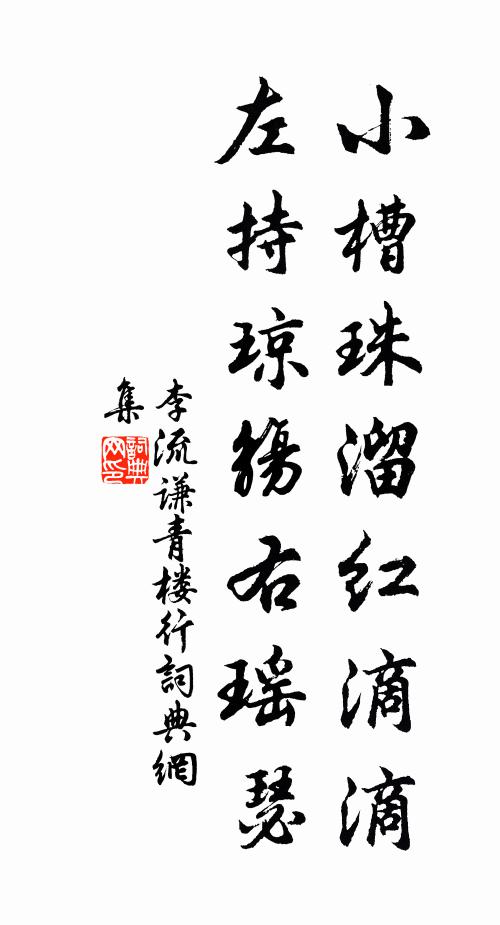 小槽珠溜红滴滴
左持琼觞右瑶瑟
李流谦青楼行詞典網
集
詞典网印